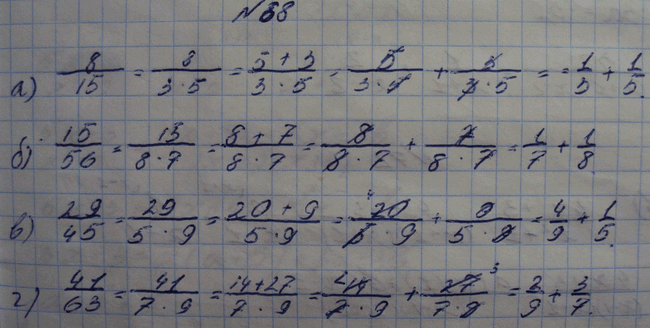 №68
а) 8/15 = 8/(3·5) = (5+3)/(3·5) = 5/(3·5) + 3/(3·5) = 1/3 + 1/5.
б) 15/56 = 15/(8·7) = (8+7)/(8·7) = 8/(8·7) + 7/(8·7) = 1/7 + 1/8.
в) 29/45 = 29/(5·9) = (20+9)/(5·9) = 4 20/(5·9) + 9/(5·9) = 4/9 + 1/5.
г) 41/63 = 41/(7·9) = (14+27)/(7·9) = 2 14/(7·9) + 27 3/(7·9) = 2/9 + 3/7.